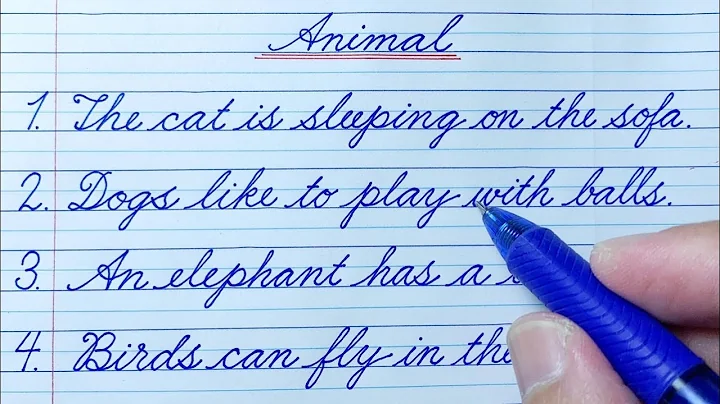 Animal
1. The cat is sleeping on the sofa.
2. Dogs like to play with balls.
3. An elephant has a
4. Birds can fly in the